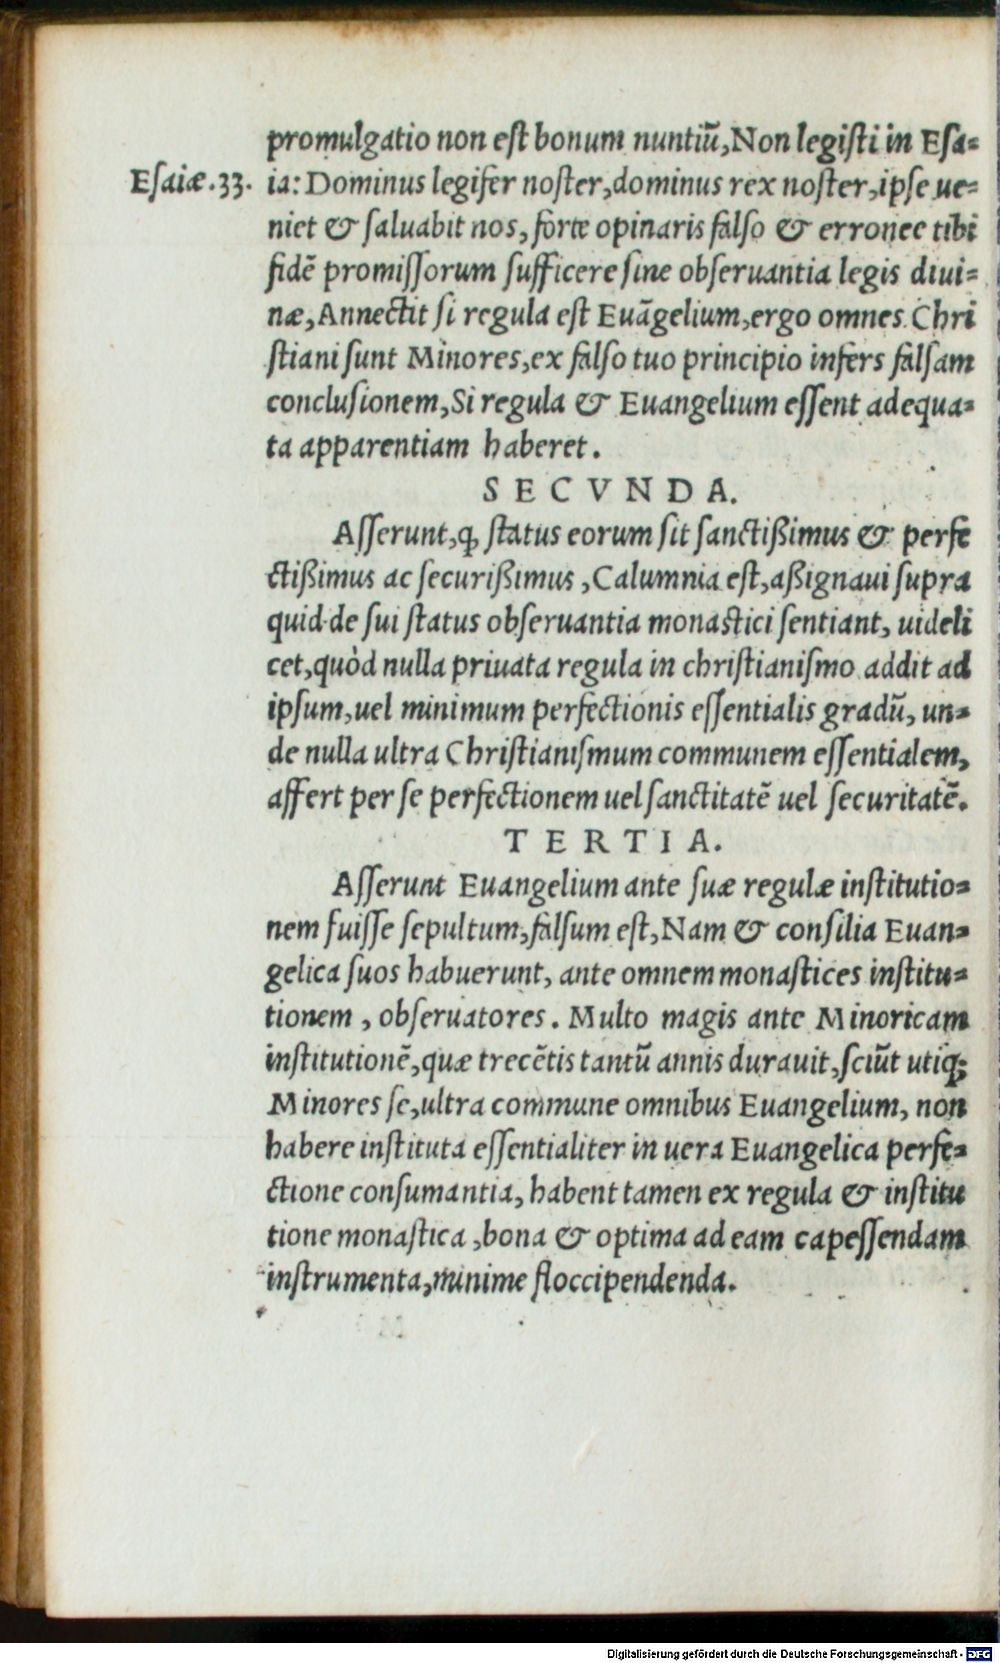 promulgatio non est bonum nuntiū, Non legisti in Esa=
Esaiæ.33. ia: Dominus legifer noster, dominus rex noster, ipse ue=
niet & saluabit nos, forte opinaris falso & erronee tibi
fidē promissorum sufficere sine obseruantia legis diui=
næ, Annectit si regula est Euāgelium, ergo omnes Chri
stiani sunt Minores, ex falso tuo principio infers falsam
conclusionem, Si regula & Euangelium essent adequa=
ta apparentiam haberet.
SECVNDA.
Asserunt, ꝙ status eorum sit sanctißimus & perfe
ctißimus ac securißimus, Calumnia est, aßignaui supra
quid de sui status obseruantia monastici sentiant, uideli
cet, quòd nulla priuata regula in christianismo addit ad
ipsum, uel minimum perfectionis essentialis gradū, un=
de nulla ultra Christianismum communem essentialem,
affert per se perfectionem uel sanctitatē uel securitatē.
TERTIA.
Asserunt Euangelium ante suæ regulæ institutio=
nem fuisse sepultum, falsum est, Nam & consilia Euan=
gelica suos habuerunt, ante omnem monastices institu=
tionem, obseruatores. Multo magis ante Minoricam
institutionē, quæ trecētis tantū annis durauit, sciūt utiq;
Minores se, ultra commune omnibus Euangelium, non
habere instituta essentialiter in uera Euangelica perfe=
ctione consumantia, habent tamen ex regula & institu
tione monastica, bona & optima ad eam capessendam
instrumenta, minime floccipendenda.
Digitalisierung gefördert durch die Deutsche Forschungsgemeinschaft - DFG